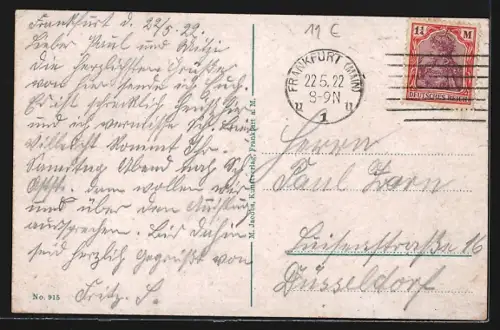 Frankfurt d. 22/5. 22.
Lieber Paul und Mitzi
die herzlichsten Grüße
von hier sende ich Euch.
Es ist schrecklich heiß
und ich vermisse Dich.
Vielleicht kommt Ihr
Samstag Abend nach
dann wollen wir
und über den Ausflug
aussprechen. Bis dahin
seid herzlich Gegrüßt von
Fritz. S.
No. 915
M. Jacobs, Kunstverlag, Frankfurt a. M.
11 €
FRANKFURT (MAIN)
22.5.22
8-9N
1
1¼ M
DEUTSCHES REICH
Herrn
Paul Zorn
Luisenstraße 16
Düsseldorf